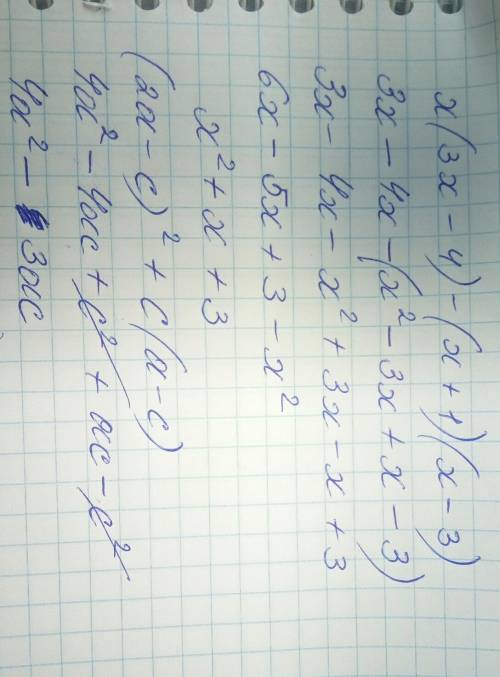 x(3x - 4) - (x + 1)(x - 3)
3x - 4x - (x² - 3x + x - 3)
3x - 4x - x² + 3x - x + 3
6x - 5x + 3 - x²
x² + x + 3
(2a - c)² + c(a - c)
4a² - 4ac + c² + ac - c²
4a² - 3ac